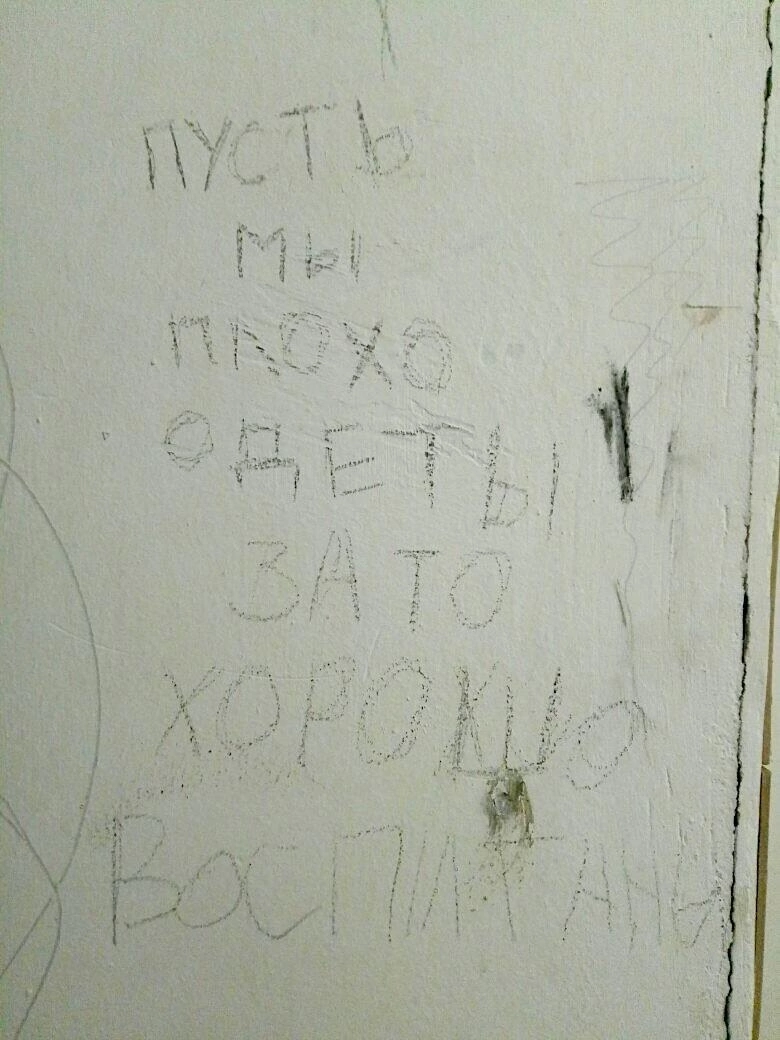 ПУСТЬ
МЫ
ПЛОХО
ОДЕТЫ
ЗА ТО
ХОРОШО
ВОСПИТАНЫ